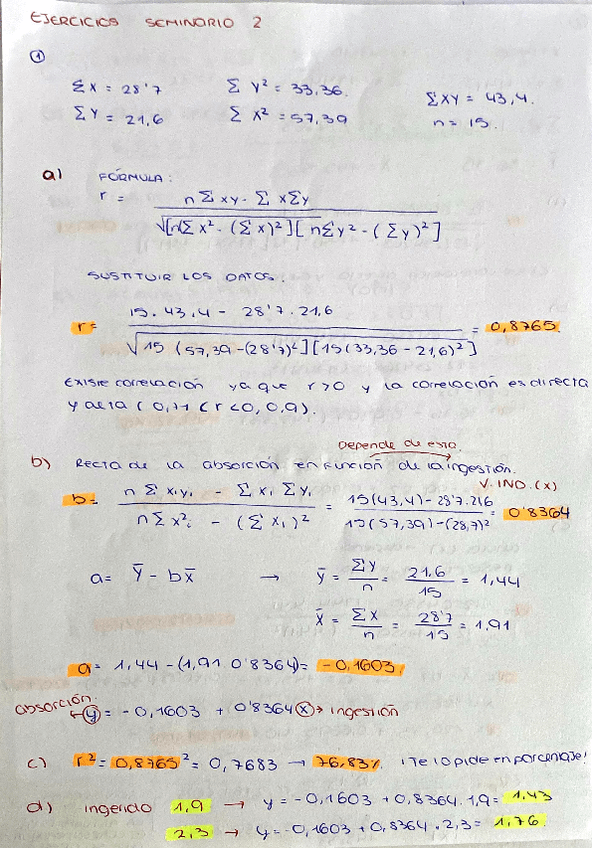 EJERCICIOS SEMINARIO 2
①
Σ X = 28'7 Σ Y² = 33,36. Σ XY = 43,4.
Σ Y = 21,6 Σ X² = 57,39 n = 15.
a) FÓRMULA:
r = n Σ xy - Σ x Σ y / √[nΣ x² - (Σ x)²][nΣ y² - (Σ y)²]
SUSTITUIR LOS DATOS.
r = 15 · 43,4 - 28'7 · 21,6 / √15 (57,39 - (28'7)²][15(33,36 - 21,6)²] = 0,8765.
Existe correlación ya que r>0 y la correlación es directa
y alta (0,7< r <0,0,9).
Depende de esta.
b) Recta de la absorción en función de la ingestión.
V. IND. (x)
b = n Σ xᵢyᵢ - Σ xᵢ Σ yᵢ / n Σ x²ᵢ - (Σ xᵢ)² = 15(43,4) - 28'7·21'6 / 15(57,39) - (28,7)² = 0'8364
a = ȳ - b x̄ → ȳ = Σ y / n = 21,6 / 15 = 1,44
x̄ = Σ x / n = 28'7 / 15 = 1,91
a = 1,44 - (1,91 · 0'8364) = -0,1603.
absorción.
y = -0,1603 + 0'8364 x → ingestión
c) r² = 0,8765² = 0,7683 → 76,83% ¡Te lo pide en porcentaje!
d) ingerido 1,9 → y = -0,1603 + 0,8364 · 1,9 = 1,43
2,3 → y = -0,1603 + 0,8364 · 2,3 = 1,76.